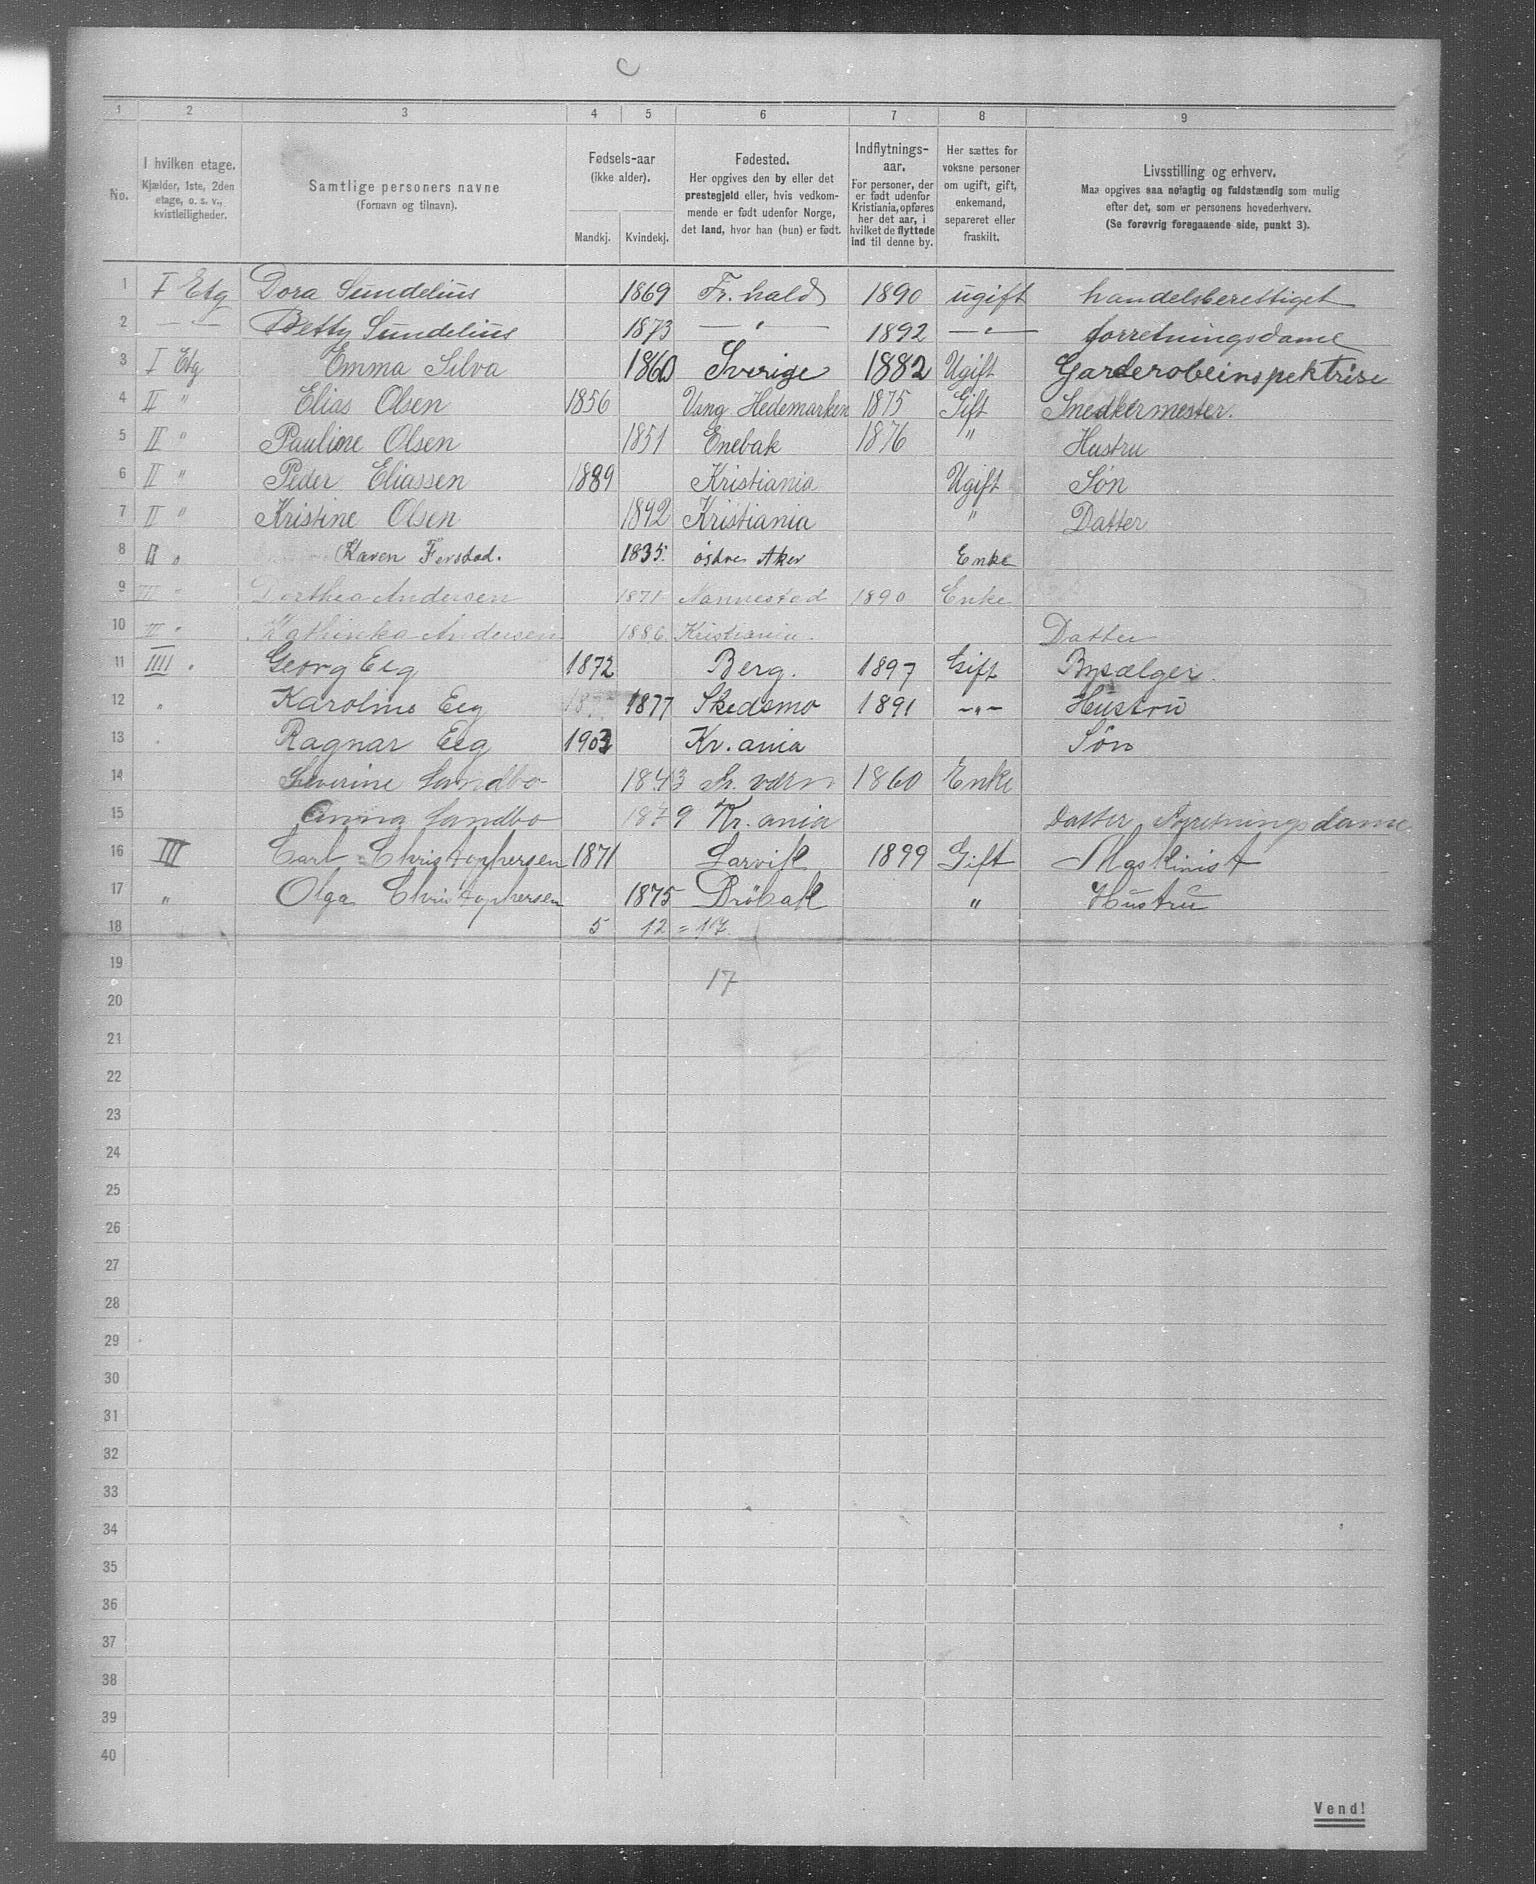 C
1 2 3 4 5 6 7 8 9
No.
I hvilken etage.
Kjælder, 1ste, 2den
etage, o. s. v.,
kvistleiligheder.
Samtlige personers navne
(Fornavn og tilnavn).
Fødsels-aar
(ikke alder).
Mandkj. Kvindekj.
Fødested.
Her opgives den by eller det
prestegjeld eller, hvis vedkom-
mende er født udenfor Norge,
det land, hvor han (hun) er født.
Indflytnings-
aar.
For personer, der
er født udenfor
Kristiania, opføres
her det aar, i
hvilket de flyttede
ind til denne by.
Her sættes for
voksne personer
om ugift, gift,
enkemand,
separeret eller
fraskilt.
Livsstilling og erhverv.
Maa opgives saa nøiagtig og fuldstændig som mulig
efter det, som er personens hovederhverv.
(Se forøvrig foregaaende side, punkt 3).
1 I Etg Dora Sundelius 1869 Fr. hald 1890 ugift handelsberettiget
2 — — Betty Sundelius 1873 — " — 1892 — " — forretningsdame
3 I Etg Emma Silva 1860 Sverige 1882 Ugift Garderobeinspektrise
4 II " Elias Olsen 1856 Vang Hedemarken 1875 Gift Snedkermester.
5 II " Pauline Olsen 1851 Enebak 1876 " Hustru
6 II " Peder Eliassen 1889 Kristiania Ugift Søn
7 II " Kristine Olsen 1892 Kristiania " Datter
8 II " Karen Ferstad. 1835. østre Aker Enke
9 III " Dorthea Andersen 1871 Nannestad 1890 Enke
10 III " Kathinka Andersen 1886. Kristiania. Datter
11 IIII " Georg Eeg 1872 Berg. 1897 Gift Bysælger.
12 " Karoline Eeg 1877 Skedsmo 1891 -"- Hustru
13 " Ragnar Eeg 1903 Kr. ania Søn
14 Severine Sandbo 1843 Fr. værn 1860 Enke
15 Anna Sandbo 1879 Kr. ania Datter Foretningsdame
16 III Carl Christophersen 1871 Larvik 1899 Gift Maskinist
17 " Olga Christophersen 1875 Drøbak " Hustru
18 5 12 = 17.
19 17
20
21
22
23
24
25
26
27
28
29
30
31
32
33
34
35
36
37
38
39
40
Vend!